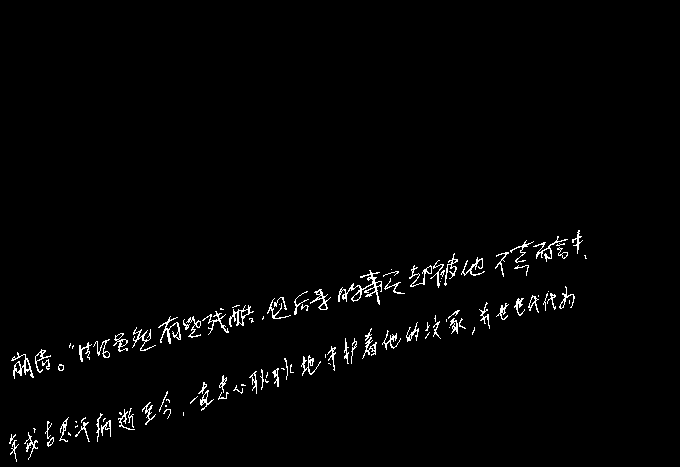 崩溃。"情话虽然有些残酷,但后来的事实却被他不幸而言中,
年成吉思汗病逝至今,一直忠心耿耿地守护着他的坟冢,并世世代代为